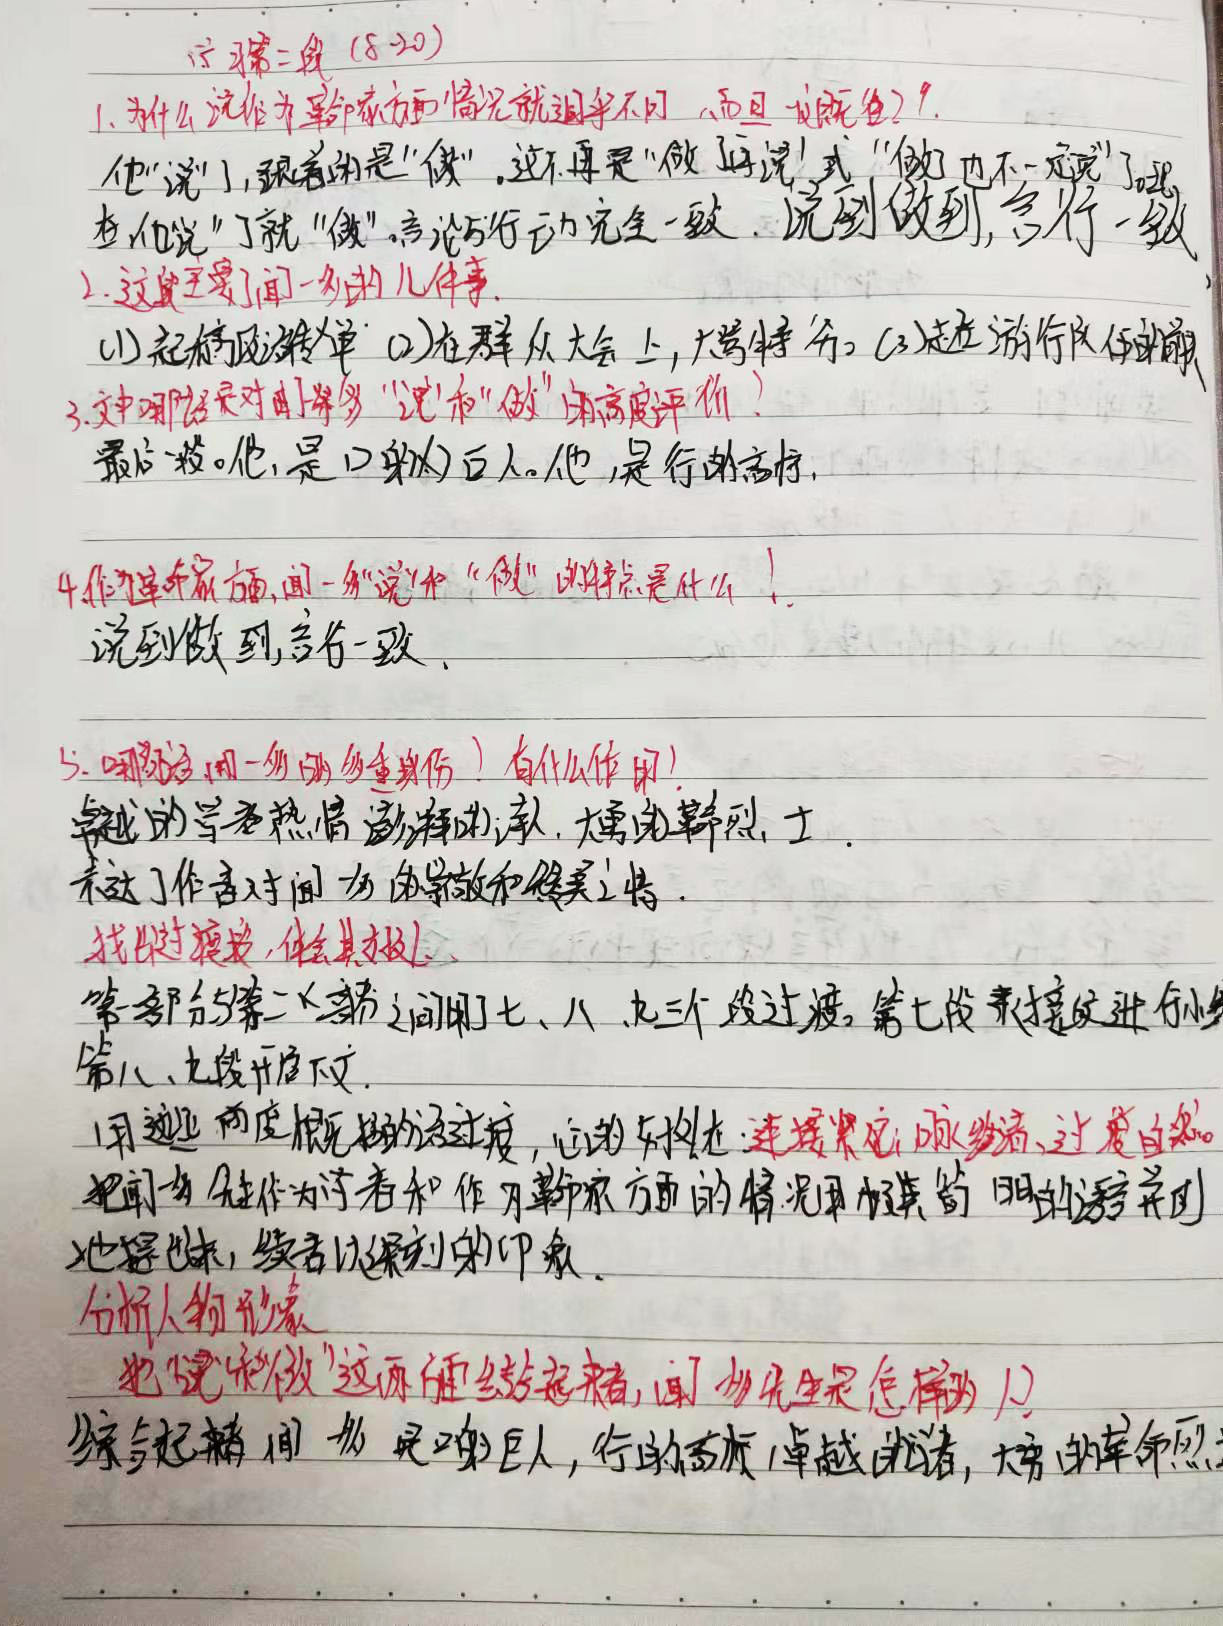 习第二段（8-20）
1、为什么说作为革命家方面情况就迥乎不同，而且一反既往？
他"说"了，跟着的是"做"。这不再是"做了再说"式"做了也不一定说"了。现
在，他"说"了就"做"。言论与行动完全一致、说到做到，言行一致
2、这段主要了闻一多的几件事。
(1)起稿政治传单 (2)在群众大会上，大骂特务。(3)走在游行队伍的前
3、文中哪些是对闻一多"说"和"做"的高度评价？
最后一段。他，是口的巨人。他，是行的高标。
4、作为革命家方面，闻一多"说"和"做"的特点是什么？
说到做到，言行一致、
5、闻一多的多重身份？有什么作用？
卓越的学者热情澎湃的诗人、大勇的革命烈士.
表达了作者对闻一多的崇敬和赞美之情.
找出过渡段，体会其
第一部分与第二部分之间用了七、八、九三个段过渡。第七段承接文进行小结
第八、九段开启下文.
用这两度概括的语过度，它的好处在：连接紧密，脉络清、过度自然。
把闻一多先生作为学者和作为革命家方面的情况用极其简明的语言并列
地提出来，读者以深刻的印象.
分析人物形象
把"说"和"做"这两方面结合起来看，闻一多先生是怎样的人？
综合起来看闻一多是口的巨人，行的高标，卓越的学者，大勇的革命烈士